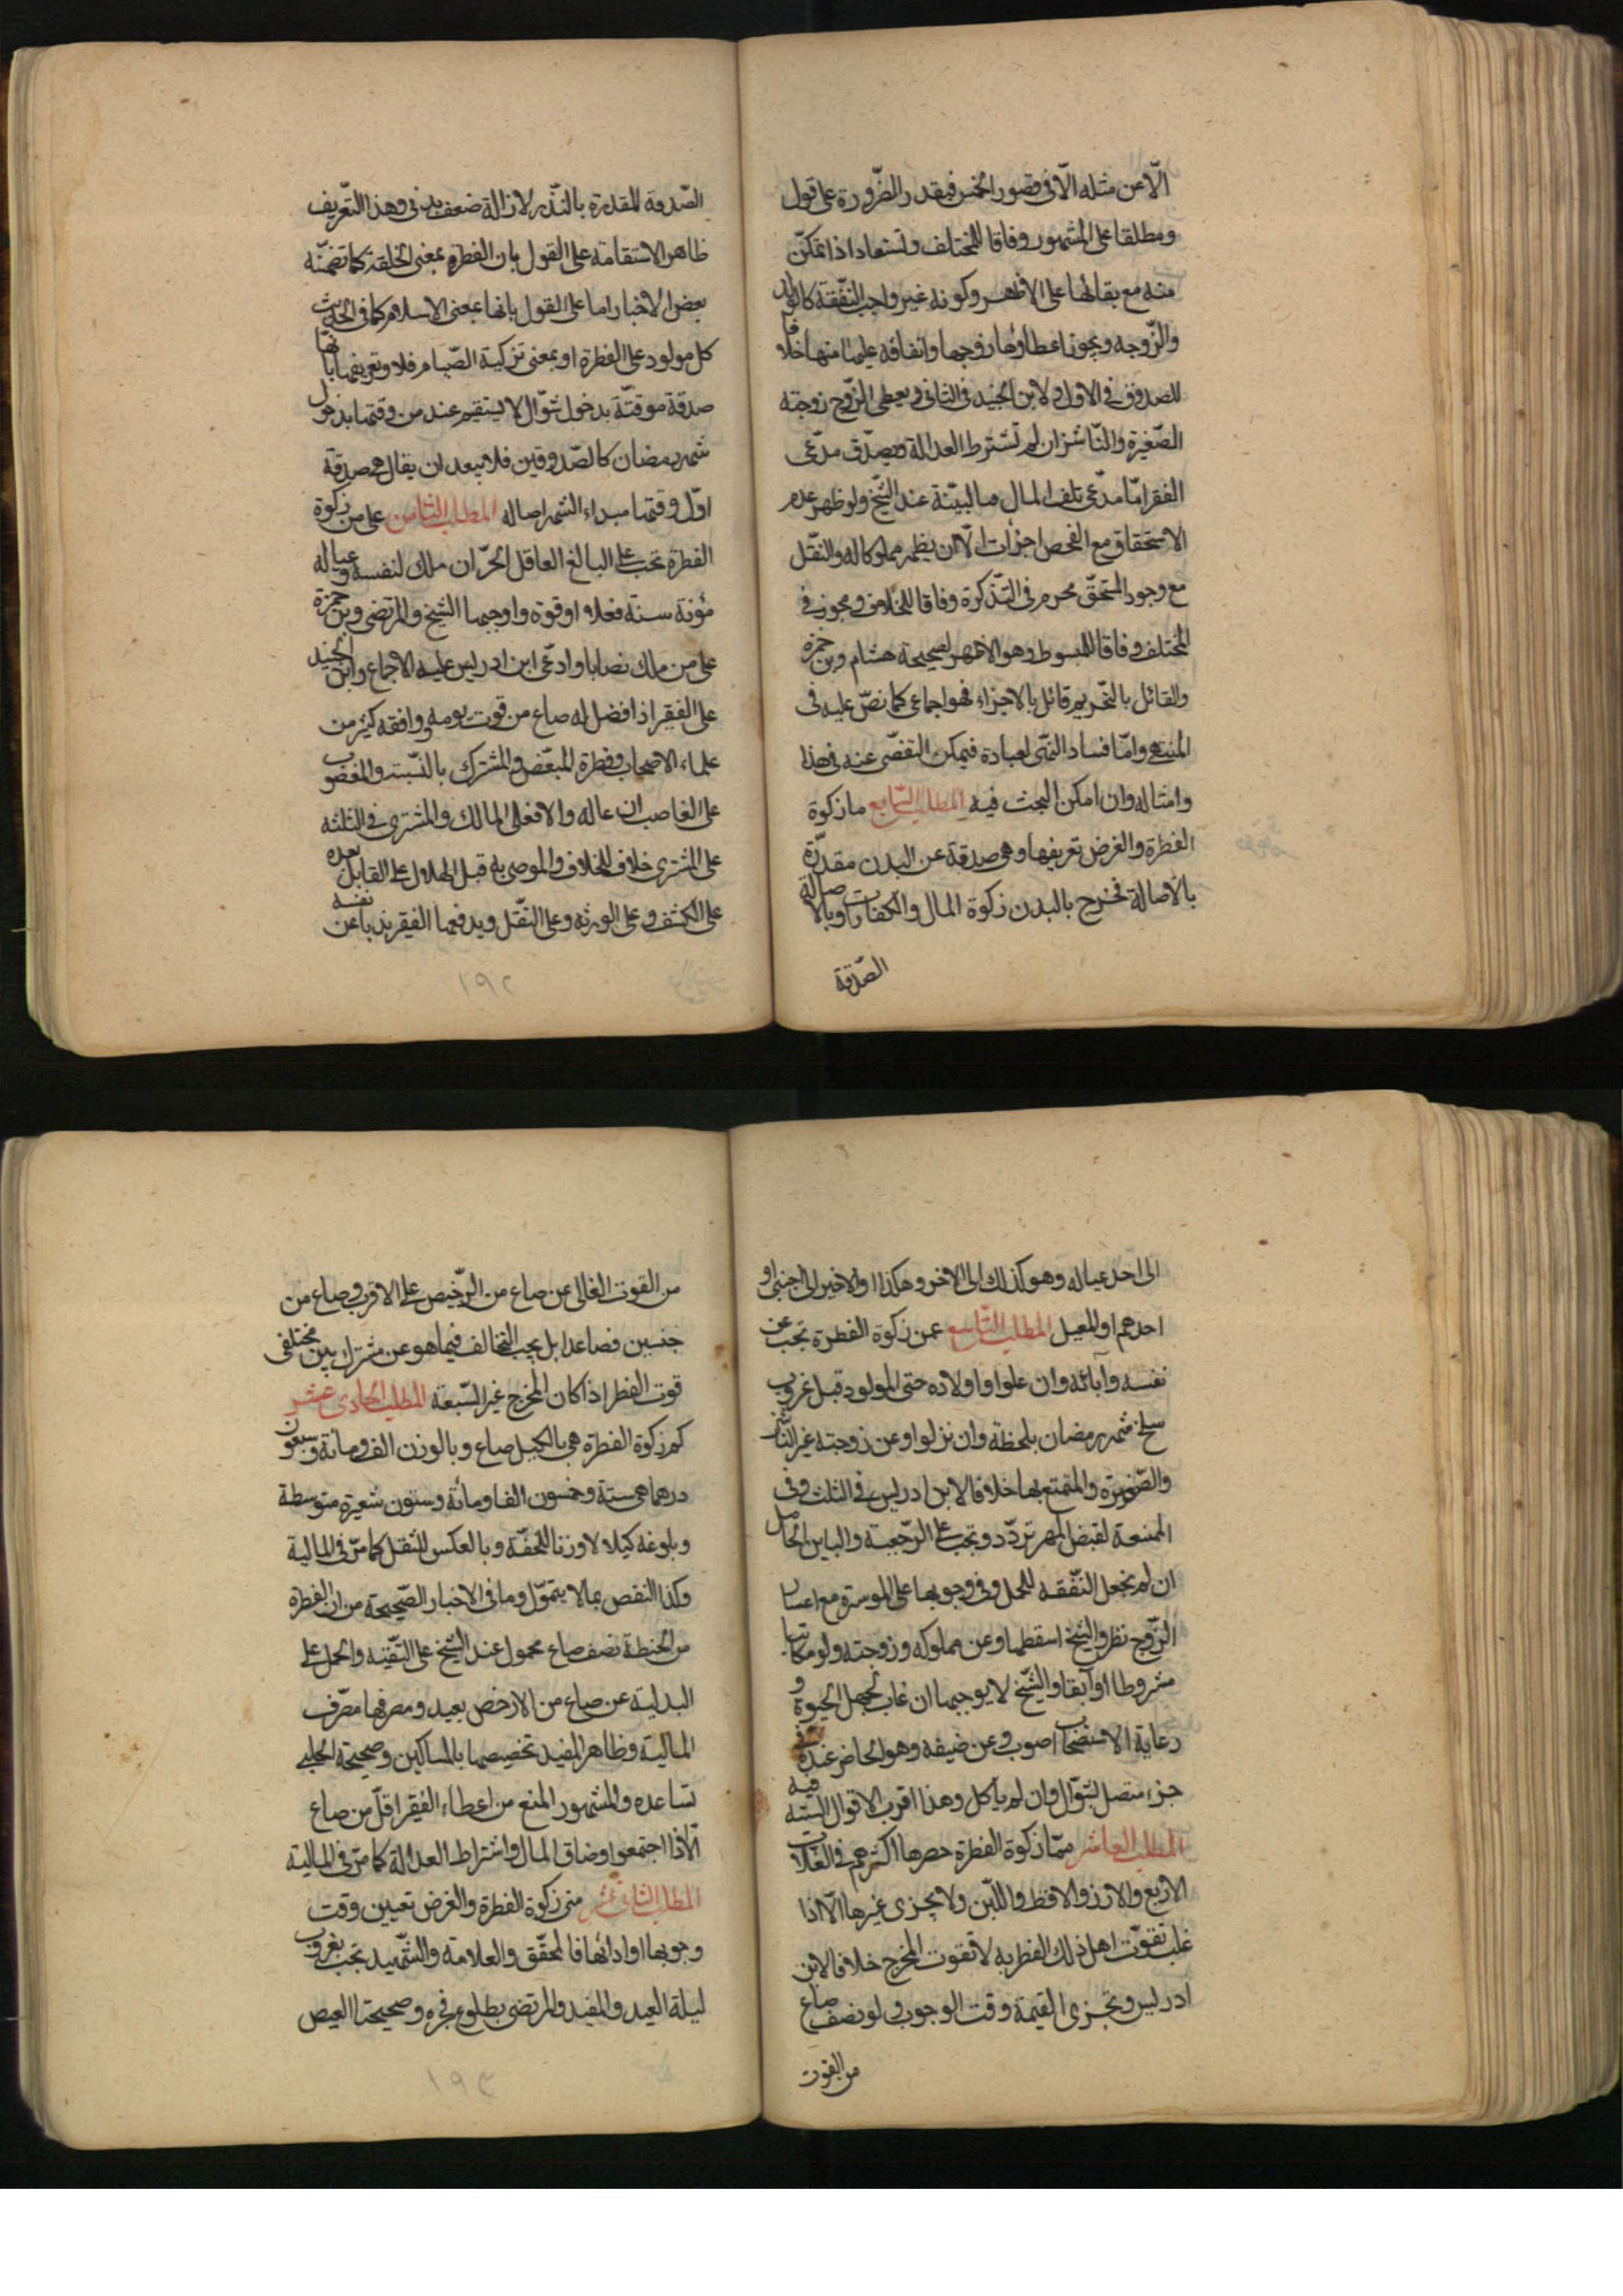 الّا عن مثله الّا فی قصور الخمس فبقدر الضّرورة علی قول
ومطلقا علی المشهور وفاقا للمختلف وتستعاد اذا تمکّن
منه مع بقائها علی الاظهر وکونه غیر واجب النّفقة کالولد
والزّوجه ویجوز اعطاؤها زوجها وانفاقه علیها منها خلافا
للصدوق فی الاول ولابن الجنید فی الثانی ویعطی الزّوج زوجته
الصّغیرة والنّاشز ان لم تشترط العدالة ویصدّق مدّعی
الفقر امّا مدّعی تلف المال فبالبیّنة عند الشّیخ ولو ظهر عدم
الاستحقاق مع الفحص اجزأت الّا ان یظهر مملوکا له والنّقل
مع وجود المستحقّ محرم فی التّذکرة وفاقا للخلاف ومجوز فی
المختلف وفاقا للمبسوط وهو الاظهر لصحیحة هشام وبن حمزة
والقائل بالتّحریم قائل بالاجزاء فهو اجماعی کما نصّ علیه فی
المنتهی وامّا فساد النّهی لعبادة فیمکن التفصّی عنه فی هذا
وامثاله وان امکن البحث فیه المطلب السّابع ما زکوة
الفطرة والغرض تعریفها وهی صدقة عن البدن مقدّرة
بالاصالة فخرج بالبدن زکوة المال والکفارات وبالاصالة
الصّدقة
الصّدقة المقدرة بالنّذر لازالة ضعف بدنی وهذا التّعریف
ظاهر الاستقامة علی القول بان الفطرة بمعنی الخلقة کما تضمّنه
بعض الاخبار اما علی القول بانها بمعنی الاسلام کما فی الحدیث
کل مولود علی الفطرة او بمعنی تزکیة الصّیام فلا وتعریفها بانّها
صدقة موقتّة بدخول شوّال لا یستقیم عند من وقتها بدخول
شهر رمضان کالصّدوقین فلا یبعد ان یقال هی صدقة
اوّل وقتها مبداء الشهر اصاله المطلب الثامن علی من زکوة
الفطرة تجب علی البالغ العاقل الحرّ ان ملک لنفسه وعیاله
مؤنة سنة فعلا او قوة واوجبها الشیخ والمرتضی وبن حمزة
علی من ملک نصابا وادّعی ابن ادریس علیه الاجماع وابن الجنید
علی الفقیر اذا فضل له صاع من قوت یومه ووافقه کثیر من
علماء الاصحاب وفطرة المبعّض والمشترک بالنّسبة والمغصوب
علی الغاصب ان عاله والا فعلی المالک والمشتری فی الثلثه
علی المشتری خلاف للخلاف والموصی به قبل الهلال علی القابل بعده
علی الکشف وعلی الورثه وعلی النّقل ویدفعها الفقیر ندبا عن نفسه
۱۹۲
الی احد عیاله وهو کذلک الی الاخر وهکذا والاخیر الی اجنبی او
احدهم او المعیل المطلب التّاسع عمن زکوة الفطرة تجب عن
نفسه وآبائه وان علوا واولاده حتی المولود قبل غروب
سلخ شهر رمضان بلحظة وان نزلوا وعن زوجته غیر النّاشز
والصّغیرة والمتمتع بها خلافا لابن ادریس فی الثلث وفی
الممتنعة لقبض المهر تردّد وتجب علی الرّجعیة والباین الحامل
ان لم نجعل النّفقه للحمل وفی وجوبها علی الموسرة مع اعسار
الزّوج نظر والشیخ اسقطها وعن مملوکه وزوجته ولو مکاتبا
مشروطا او آبقا والشّیخ لا یوجبها ان غاب لجهل الحیوة و
رعایة الاستصحاب اصوب وعن ضیفه وهو الحاضر عنده فی
جزء متصل بشوّال وان لم یأکل وهذا اقرب الاقوال الستّه فیه
المطلب العاشر ممّا زکوة الفطرة حصرها اکثرهم فی الغلات
الاربع والارز والاقط واللّبن ولا یجزی غیرها الّا اذا
غلب تقوّت اهل ذلک القطر به لا تقوت المخرج خلافا لابن
ادریس وتجزی القیمة وقت الوجوب ولو نصف صاع
من القوت
من القوت الغالی عن صاع من الرّخیص علی الاقرب وصاع من
جنسین فصاعدا بل یجب التخالف فیما هو عن مشترک بین مختلفی
قوت الفطر اذا کان المخرج غیر السّبعة المطلب الحادی عشر
کم زکوة الفطرة هی بالکیل صاع وبالوزن الف ومائة وسبعون
درهما هی ستة وخمسون الفا ومأئة وستون شعیرة متوسطة
وبلوغه کیلا لا وزنا للخفّة وبالعکس للثقل کما مرّ فی المالیة
وکذا النقص بما لا یتموّل وما فی الاخبار الصّحیحة من ان الفطرة
من الحنطة نصف صاع محمول عند الشّیخ علی التّقیّه والحمل علی
البدلیة عن صاع من الارخص بعید ومصرفها مصرف
المالیة وظاهر المفید تخصیصها بالمساکین وصحیحة الحلبی
تساعده والمشهور المنع من اعطاء الفقیر اقلّ من صاع
الّا اذا اجتمعوا وضاق المال واشتراط العدالة کما مرّ فی المالیة
المطلب الثانی عشر متی زکوة الفطرة والغرض تعیین وقت
وجوبها وادائها فالمحقّق والعلامة والشّهید تجب بغروب
لیلة العید والمفید والمرتضی بطلوع فجره وصحیحتا العیص
۱۹۳